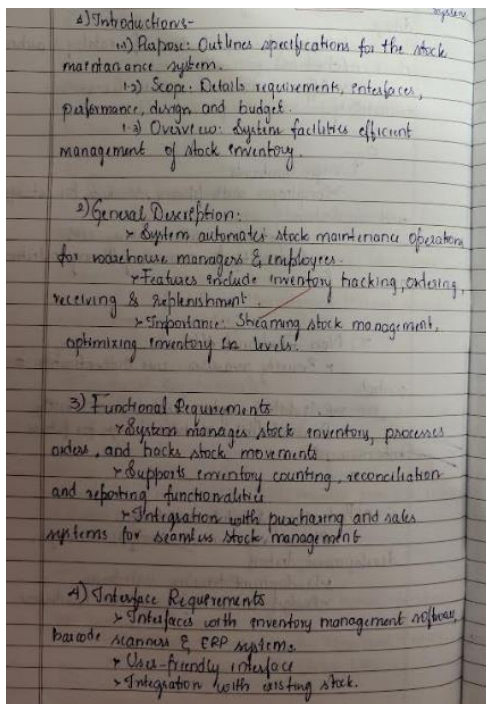 System
1) Introduction:-
1.1) Purpose: Outlines specifications for the stock
maintanance system.
1.2) Scope: Details requirements, interfaces,
performance, design and budget.
1.3) Overview: System facilities efficient
management of stock inventory.
2) General Description:
> System automates stock maintenance operation
for warehouse managers & employees.
> Features include inventory tracking, ordering,
receiving & replenishment.
> Importance: Streaming stock management,
optimizing inventory in levels.
3) Functional Requirements
> System manages stock inventory, processes
orders, and tracks stock movements
> Supports inventory counting, reconciliation
and reporting functionalities
> Integration with purchasing and sales
systems for seamless stock management
4) Interface Requirements
> Interfaces with inventory management software,
barcode scanners & ERP systems.
> User-friendly interface
> Integration with existing stock.